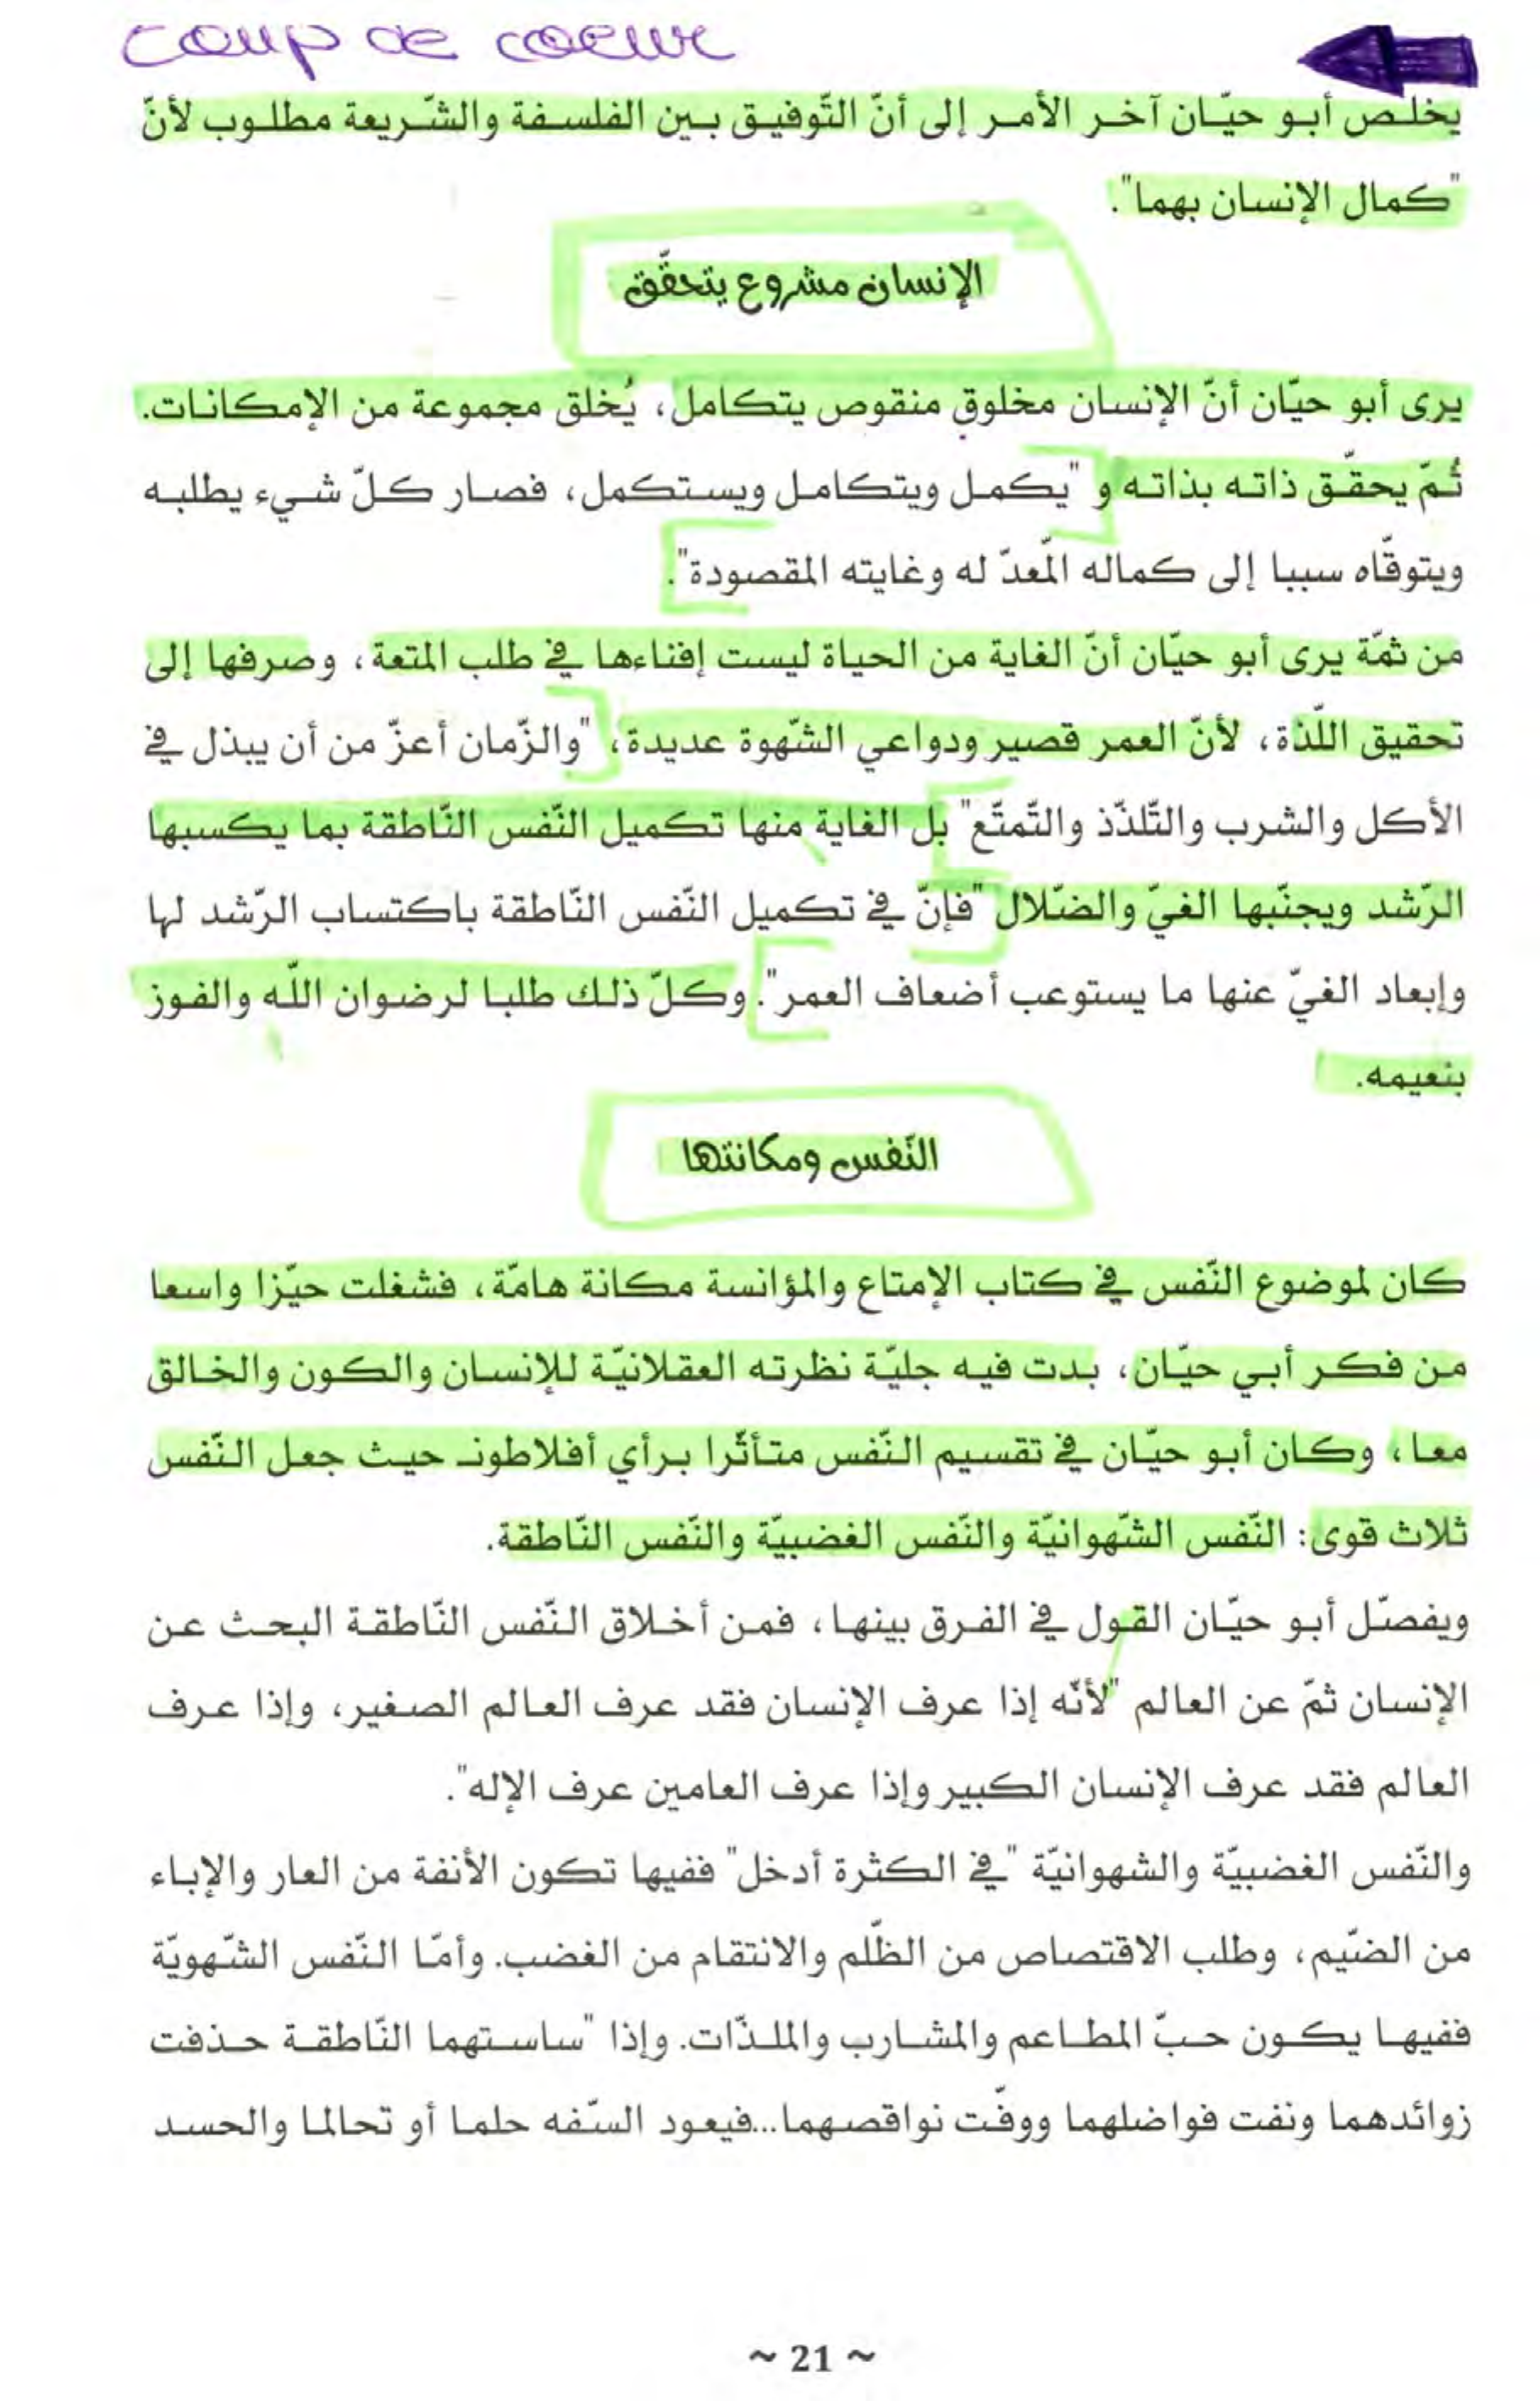 coup de coeur
يخلص أبو حيّان آخر الأمر إلى أنّ التّوفيق بين الفلسفة والشّريعة مطلوب لأنّ
"كمال الإنسان بهما".
الإنسان مشروع يتحقّق
يرى أبو حيّان أنّ الإنسان مخلوق منقوص يتكامل، يُخلق مجموعة من الإمكانات.
ثُمّ يحقّق ذاته بذاته و "يكمل ويتكامل ويستكمل، فصار كلّ شيء يطلبه
ويتوقّاه سببا إلى كماله المّعدّ له وغايته المقصودة".
من ثمّة يرى أبو حيّان أنّ الغاية من الحياة ليست إفناءها في طلب المتعة، وصرفها إلى
تحقيق اللّذة، لأنّ العمر قصير ودواعي الشّهوة عديدة، "والزّمان أعزّ من أن يبذل في
الأكل والشرب والتّلذّذ والتّمتّع" بل الغاية منها تكميل النّفس النّاطقة بما يكسبها
الرّشد ويجنّبها الغيّ والضّلال "فإنّ في تكميل النّفس النّاطقة باكتساب الرّشد لها
وإبعاد الغيّ عنها ما يستوعب أضعاف العمر". وكلّ ذلك طلبا لرضوان اللّه والفوز
بنعيمه.
النّفس ومكانتها
كان لموضوع النّفس في كتاب الإمتاع والمؤانسة مكانة هامّة، فشغلت حيّزا واسعا
من فكر أبي حيّان، بدت فيه جليّة نظرته العقلانيّة للإنسان والكون والخالق
معا، وكان أبو حيّان في تقسيم النّفس متأثّرا برأي أفلاطون حيث جعل النّفس
ثلاث قوى: النّفس الشّهوانيّة والنّفس الغضبيّة والنّفس النّاطقة.
ويفصّل أبو حيّان القول في الفرق بينها، فمن أخلاق النّفس النّاطقة البحث عن
الإنسان ثمّ عن العالم "لأنّه إذا عرف الإنسان فقد عرف العالم الصغير، وإذا عرف
العالم فقد عرف الإنسان الكبير وإذا عرف العامين عرف الإله".
والنّفس الغضبيّة والشهوانيّة "في الكثرة أدخل" ففيها تكون الأنفة من العار والإباء
من الضّيم، وطلب الاقتصاص من الظّلم والانتقام من الغضب. وأمّا النّفس الشّهويّة
ففيها يكون حبّ المطاعم والمشارب والملذّات. وإذا "ساستهما النّاطقة حذفت
زوائدهما ونفت فواضلهما ووفّت نواقصهما...فيعود السّفه حلما أو تحالما والحسد
~ 21 ~